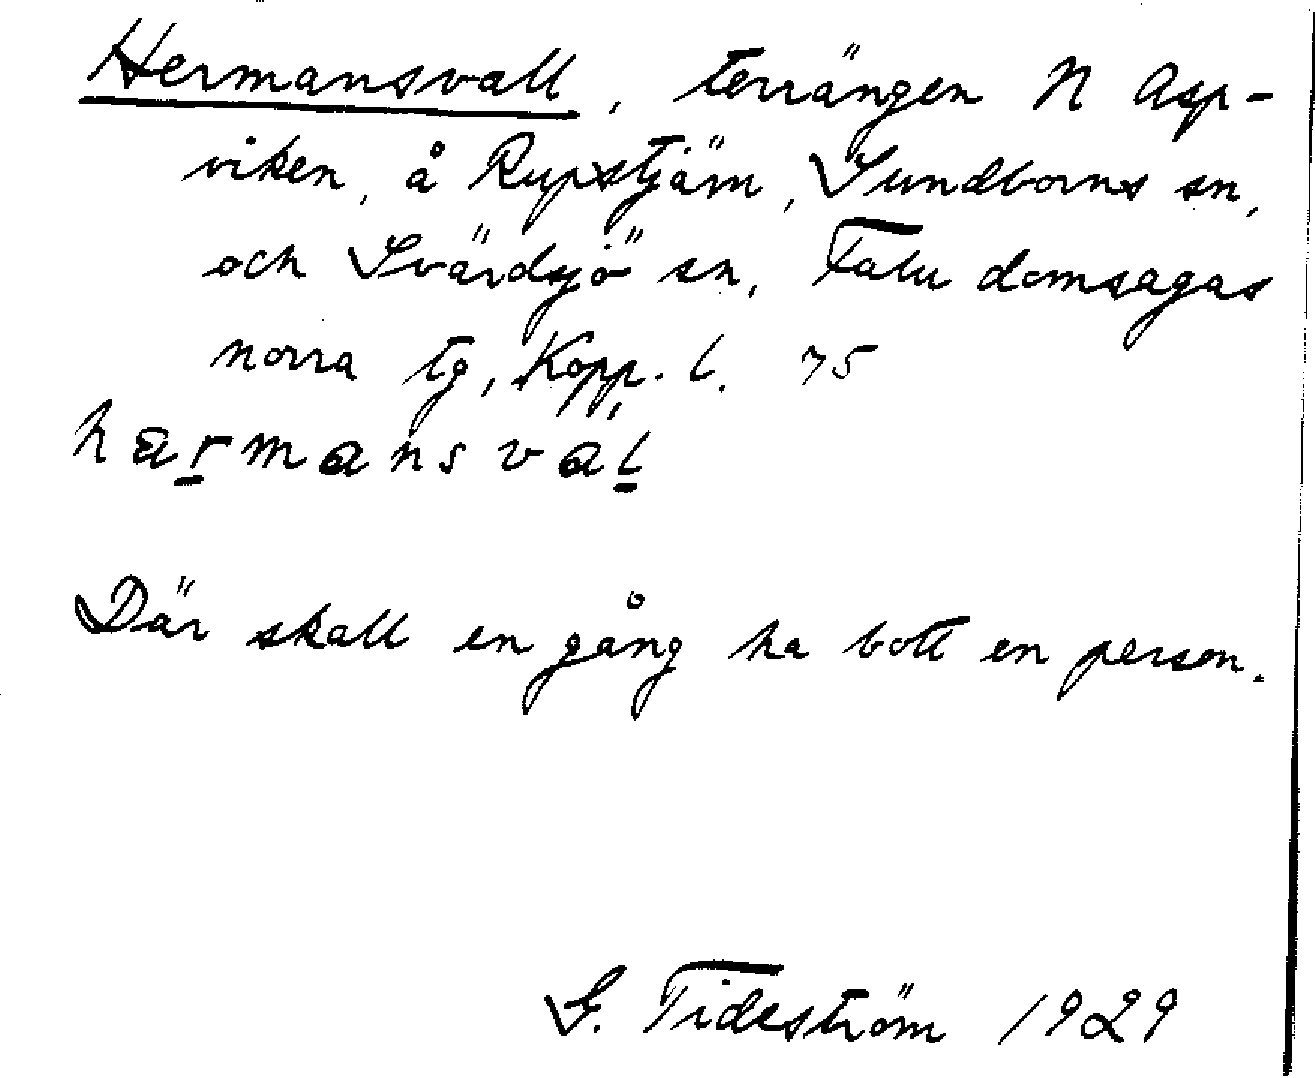 Hermansvall, terrängen N Asp-
viken, å Rupstjärn, Sundborns sn,
och Svärdsjö sn, Falu domsagas
norra tg, Kopp. l. 75
harmansval
Där skall en gång ha bott en person.
G. Tideström 1929